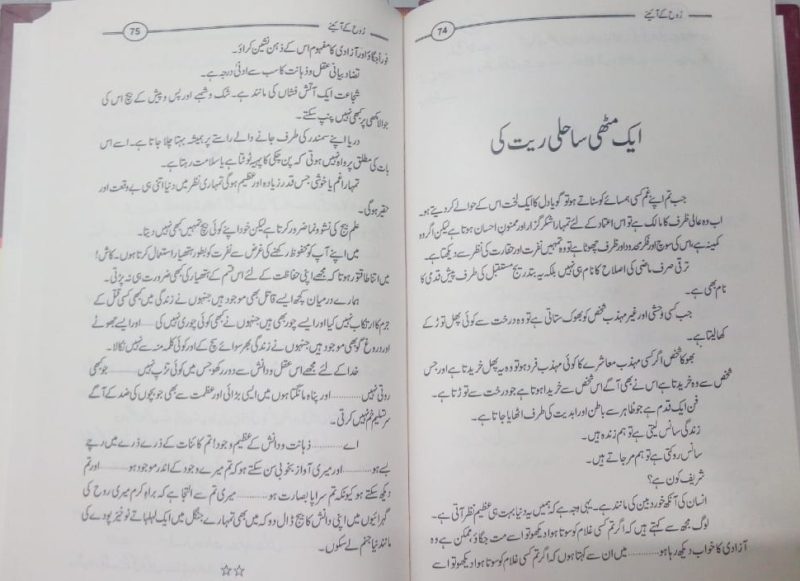 رُوح کے آئینے
74
ایک مٹھی ساحلی ریت کی
جب تم اپنے غم کسی ہمسائے کو سناتے ہو تو گویا دل کا ایک لخت اس کے حوالے کر دیتے ہو۔
اب وہ عالی ظرف کا مالک ہے تو اس اعتماد کے لئے تمہارا شکر گزار اور ممنونِ احسان ہوتا ہے لیکن اگر وہ
کمینہ ہے اس کی سوچ اور فکر محدود اور ظرف چھوٹا ہے تو وہ تمہیں نفرت اور حقارت کی نظر سے دیکھتا ہے۔
ترقی صرف ماضی کی اصلاح کا نام ہی نہیں بلکہ یہ بتدریج مستقبل کی طرف پیش قدمی کا
نام بھی ہے۔
جب کسی وحشی اور غیر مہذب شخص کو بھوک ستاتی ہے تو وہ درخت سے کوئی پھل توڑ کے
کھا لیتا ہے۔
بھوکا شخص اگر کسی مہذب معاشرے کا کوئی مہذب فرد ہو تو وہ یہ پھل خریدتا ہے اور جس
شخص سے وہ خریدتا ہے اس نے بھی آگے اس شخص سے خریدا ہوتا ہے جو درخت سے توڑتا ہے۔
فن ایک قدم ہے جو ظاہر سے باطن اور ابدیت کی طرف اٹھایا جاتا ہے۔
زندگی سانس لیتی ہے تو ہم زندہ ہیں۔
سانس روکتی ہے تو ہم مر جاتے ہیں۔
شریف کون ہے؟
انسان کی آنکھ خوردبین کی مانند ہے۔ یہی وجہ ہے کہ ہمیں یہ دنیا بہت ہی عظیم نظر آتی ہے۔
لوگ مجھ سے کہتے ہیں کہ اگر تم کسی غلام کو سوتا ہوا دیکھو تو اسے مت جگاؤ ممکن ہے وہ
آزادی کا خواب دیکھ رہا ہو ......... میں ان سے کہتا ہوں کہ اگر تم کسی غلام کو سوتا ہوا دیکھو تو اسے
رُوح کے آئینے
75
فوراً جگاؤ اور آزادی کا مفہوم اس کے ذہن نشین کراؤ۔
تضاد بیانی عقل و ذہانت کا سب سے ادنیٰ درجہ ہے۔
شجاعت ایک آتش فشاں کی مانند ہے۔ شک و شبہے اور پس و پیش کے بیج اس کی
جوالا مکھی پر کبھی نہیں پنپ سکتے۔
دریا اپنے سمندر کی طرف جانے والے راستے پر ہمیشہ بہتا چلا جاتا ہے۔ اسے اس
بات کی مطلق پرواہ نہیں ہوتی کہ پن چکی کا پہیہ ٹوٹتا ہے یا سلامت رہتا ہے۔
تمہارا غم یا خوشی جس قدر زیادہ اور عظیم ہوگی تمہاری نظر میں دنیا اتنی ہی بے وقعت اور
حقیر ہوگی۔
علم بیج کی نشوونما ضرور کرتا ہے لیکن خود اپنے کوئی بیج تمہیں کبھی نہیں دیتا۔
میں اپنے آپ کو محفوظ رکھنے کی غرض سے نفرت کو بطور ہتھیار استعمال کرتا ہوں۔ کاش!
میں اتنا طاقتور ہوتا کہ مجھے اپنی حفاظت کے لئے اس قسم کے ہتھیار کی کبھی ضرورت ہی نہ پڑتی۔
ہمارے درمیان کچھ ایسے قاتل بھی موجود ہیں جنہوں نے زندگی میں بھی کسی قتل کے
جرم کا ارتکاب نہیں کیا اور ایسے چور بھی ہیں جنہوں نے کبھی کوئی چوری نہیں کی ......... اور ایسے جھوٹے
اور دروغ گو بھی موجود ہیں جنہوں نے زندگی بھر سوائے سچ کے اور کوئی کلمہ منہ سے نہیں نکالا۔
خدا کے لئے مجھے اس عقل و دانش سے دور رکھو جس میں کوئی تڑپ نہیں ......... جو کبھی
روتی نہیں ......... اور پناہ مانگتا ہوں میں ایسی بڑائی اور عظمت سے بھی جو بچوں کی ضد کے آگے
سرِ تسلیم خم نہیں کرتی۔
اے ......... ذہانت و دانش کے عظیم وجود! تم کائنات کے ذرے ذرے میں رچے
بسے ہو ......... اور میری آواز بخوبی سن سکتے ہو کہ تم میرے وجود کے اندر موجود ہو ......... اور تم
دیکھ سکتے ہو کیونکہ تم سراپا بصارت ہو ......... میری تم سے التجا ہے کہ براہ کرم میری روح کی
گہرائیوں میں اپنی دانش کا بیج ڈال دو کہ میں بھی تمہارے جنگل میں ایک لہلہاتے نوخیز پودے کی
مانند نیا جنم لے سکوں۔
☆☆